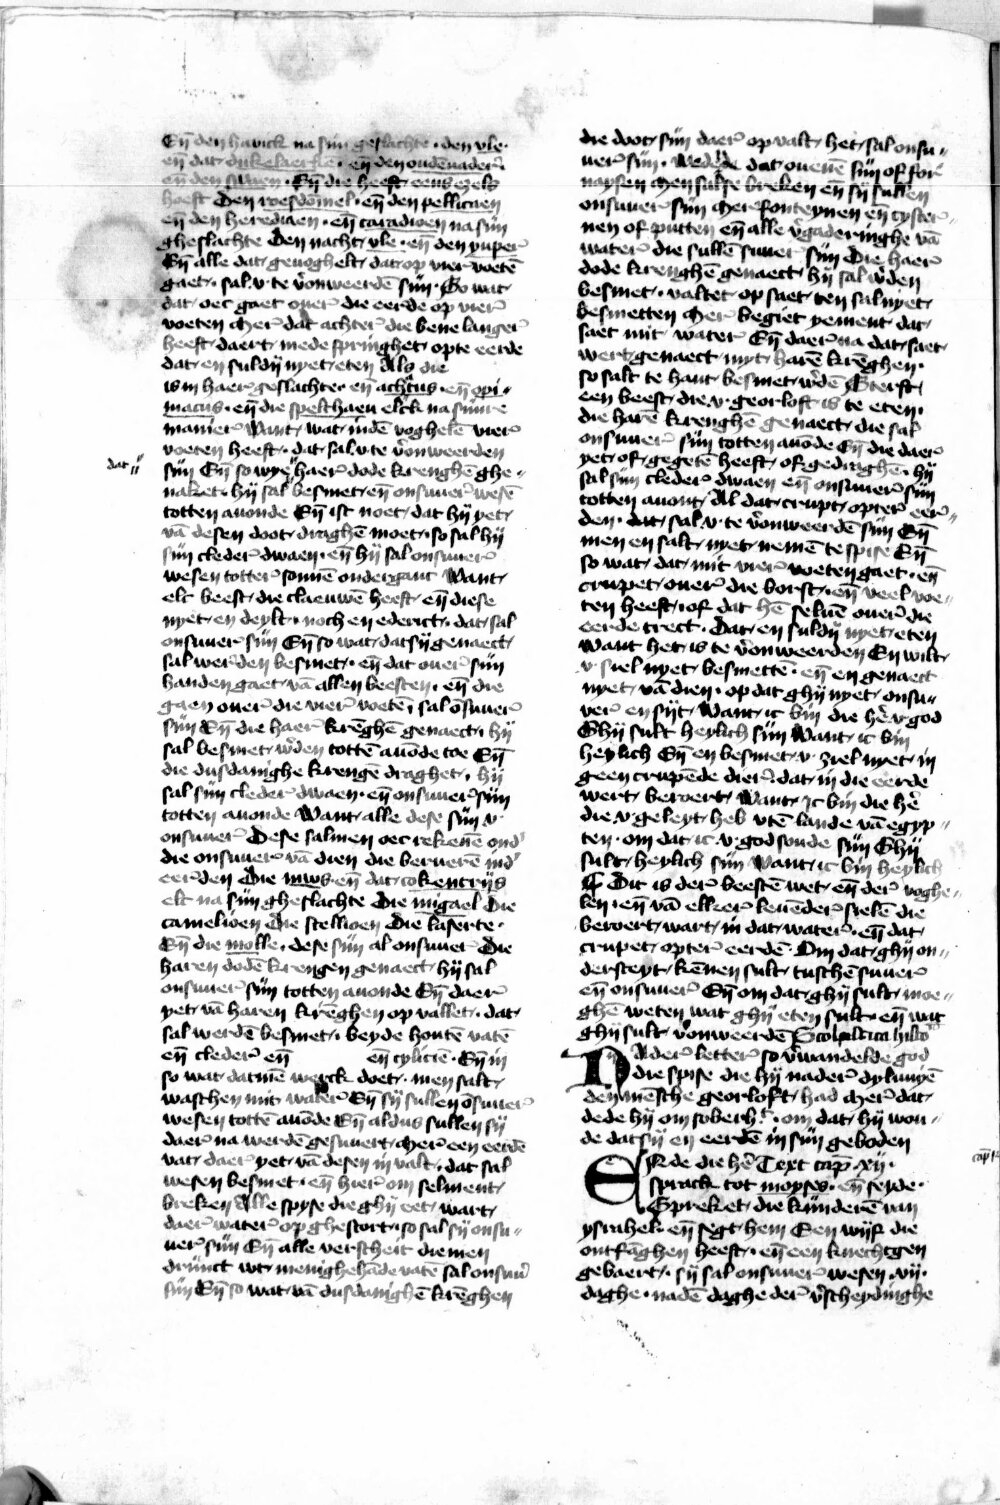 Eñ den havick na sijn geslachte · den vle ·
eñ dat dukelaerkē · eñ den oudēvader
eñ den swaen · Eñ die heeft eens ezels
hoeft Den roesdōmel · eñ den pellicaen
eñ den herediaen · eñ caradioen na sijn
gheslachte Den nacht vle · eñ den puper
Eñ alle dat gevoghelt dat op vier voetē
gaet · sal v te v̉onweerdē sijn · So wat
dat oec gaet over die eerde op vier
voeten mer dat achter die bene langer
heeft daert mede springhet opte eerde
dat en suldij nyet eten Als die
is in haer geslachte · eñ achtus · eñ opi ·
macus · eñ die spelthaen elck na sinre
manier Want wat indē voghelē vier
voeten heeft · dat sal v te v̉onweerden
dat
sijn Eñ so wye haer dode krenghē ghe-
naket · hij sal besmet eñ onsuuer wesē
totten auonde Eñ ist noet dat hij yet
vā desen doot draghē moet · so sal hij
sijn cleder dwaen · eñ hij sal onsuuer
wesen totter sonnē ondergāc Want
elc beest die claeuwē heeft eñ diese
nyet en deylt · noch en ederict · dat sal
onsuuer sijn Eñ so wat dat sij genaect
sal werden besmet · eñ dat ouer sijn
handen gaet vā allen beesten · eñ die
gaen ouer die vier voetē, sal ōsuuer
sijn Eñ die haer krēghē genaect · hij
sal besmet w̉dē tottē auōde toe Eñ
die dusdanighe krengē draghet · hij
sal sijn cleder dwaen · eñ onsuuer sijn
totten auonde Want alle dese sijn v
onsuuer Dese salmen oec rekenē ond̉
die onsuuer vā dien die beruerē ind̉
eerden Die mws eñ dat cokentrijs
elc na sijn gheslachte Die migael Die
camelioen Die stellioen Die laserte ·
Eñ die molle · dese sijn al onsuuer Die
haren dodē krengen genaect hij sal
onsuuer sijn totten auonde Eñ daer
yet vā haren krēghen op vallet · dat
sal werdē besmet · beyde houtē vatē
eñ cleder eñ eñ cylicie · Eñ in
so wat datmē werck doet · men salt
waschen mit water Eñ sij sullen ōsuuer
wesen tottē auōde Eñ aldus sullen sij
daer na werdē gesuuert mer een eerdē
vat daer yet vā desen in valt · dat sal
wesen besmet · eñ hier om selment
breken Alle spyse die ghij eet wart
daer water op ghestort · so sal sij onsu-
uer sijn Eñ alle versheit diemen
drinct wt menighehāde vatē sal onsuủ
sijn Eñ so wat vā dusdanighē krēghen
die doot sijn daer op valt het sal onsu-
uer sijn · Wed̉de dat ouenē sijn of for
naysen men salse breken eñ sij sullen
onsuuer sijn mer fonteynen eñ cyster-
nen of putten eñ alle v̉gaderinghe vā
water die sullē suuer sijn Die haer
dode krenghē genaect hij sal w̉den
besmet · valtet op saet ten sal nyet
besmetten mer begiet yement dat
saet mit water Eñ daer na dat saet
wert genaect myt harē krēghen ·
so salt te hant besmet w̉dē Sterft
een beest die v georloft is te eten ·
die harē krenghē genaect die sal
onsuuer sijn totten auōde Eñ die daer
yet of gegetē heeft of gedraghē · hij
sal sijn cleder dwaen eñ onsuuer sijn
totten auont Al dat crupt opter eer-
den · dat sal v te v̉onweerdē sijn Eñ
men en salt nyet nemē te spise Eñ
so wat dat mit vier voeten gaet · eñ
crupet ouer die borst · eñ veel voe-
ten heeft · of dat hē seluē ouer die
eerde trect · Dat en suldij nyet eten
Want het is te v̉onweerden En wilt
v siel nyet besmettē · eñ en genaect
nyet vā dien · op dat ghij nyet onsu-
ver en sijt Want ic bin die hē v god
Ghij sult heylich sijn Want ic bin
heylich Eñ en besmet v ziel nyet in
geen crupēde dier dat in die eerde
wert beroert Want ic bin die hē
die v geleyt heb vtē lande vā egyp-
ten · om dat ic v god soude sijn Ghij
sult heylich sijn Want ic bin heylich
¶ Dit is der beestē wet eñ der voghe-
len · eñ vā elker leuēder sielē die
beroert wart in dat water · eñ dat
crupet opter eerdē · Om dat ghij on-
dersceyt kēnen sult tuschē suuer
eñ onsuuer Eñ om dat ghij sult moe-
ghē weten wat ghij eten sult · eñ wat
ghij sult v̉onweerdē Scolastica histo
Nader letter so v̉wandelde god
die spise die hij nader dyluuyē
den mēsche georloft had mer dat
dede hij om soberh̉ · om dat hij wou-
de dat sij en eerdē in sijn geboden
Ende die hē Text cap̄ xij ·
cap̄
sprack tot moyses · eñ seyde ·
Spreket die kinderē van
ysrahel · eñ segt hem Een wijf die
ontfāghen heeft · eñ een knechtgen
gebaert · sij sal onsuuer wesen · vij ·
daghe · nadē daghe der v̉scheydinghe